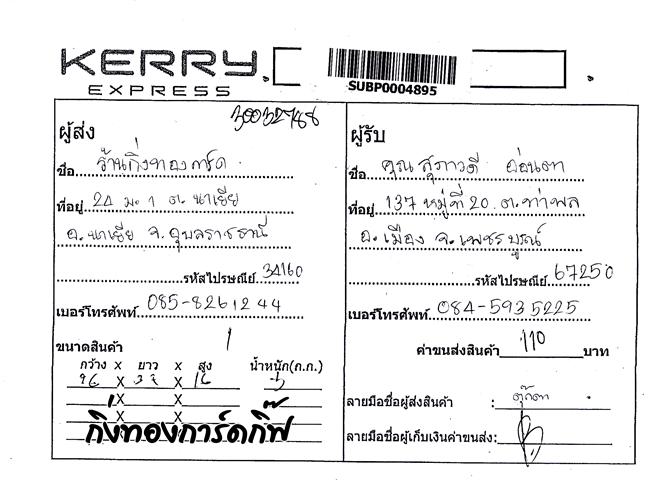 KERRY
EXPRESS
SUBP0004895
30032788
ผู้ส่ง
ชื่อ ร้านกิ่งทองการ์ด
ที่อยู่ 24 ม. 1 ต. นาเยีย
อ. นาเยีย จ. อุบลราชธานี
รหัสไปรษณีย์ 34160
เบอร์โทรศัพท์ 085-8261244
ขนาดสินค้า 1
กว้าง x ยาว x สูง น้ำหนัก(ก.ก.)
X X 16 5
X X
X X
กิ่งทองการ์ดกิ๊ฟ
ผู้รับ
ชื่อ คุณ สุภาวดี อ่อนตา
ที่อยู่ 137 หมู่ที่ 20 ต. ท่าพล
อ. เมือง จ. เพชรบูรณ์
รหัสไปรษณีย์ 67250
เบอร์โทรศัพท์ 084-5935225
ค่าขนส่งสินค้า 110 บาท
ลายมือชื่อผู้ส่งสินค้า : ตุ๊กตา
ลายมือชื่อผู้เก็บเงินค่าขนส่ง: